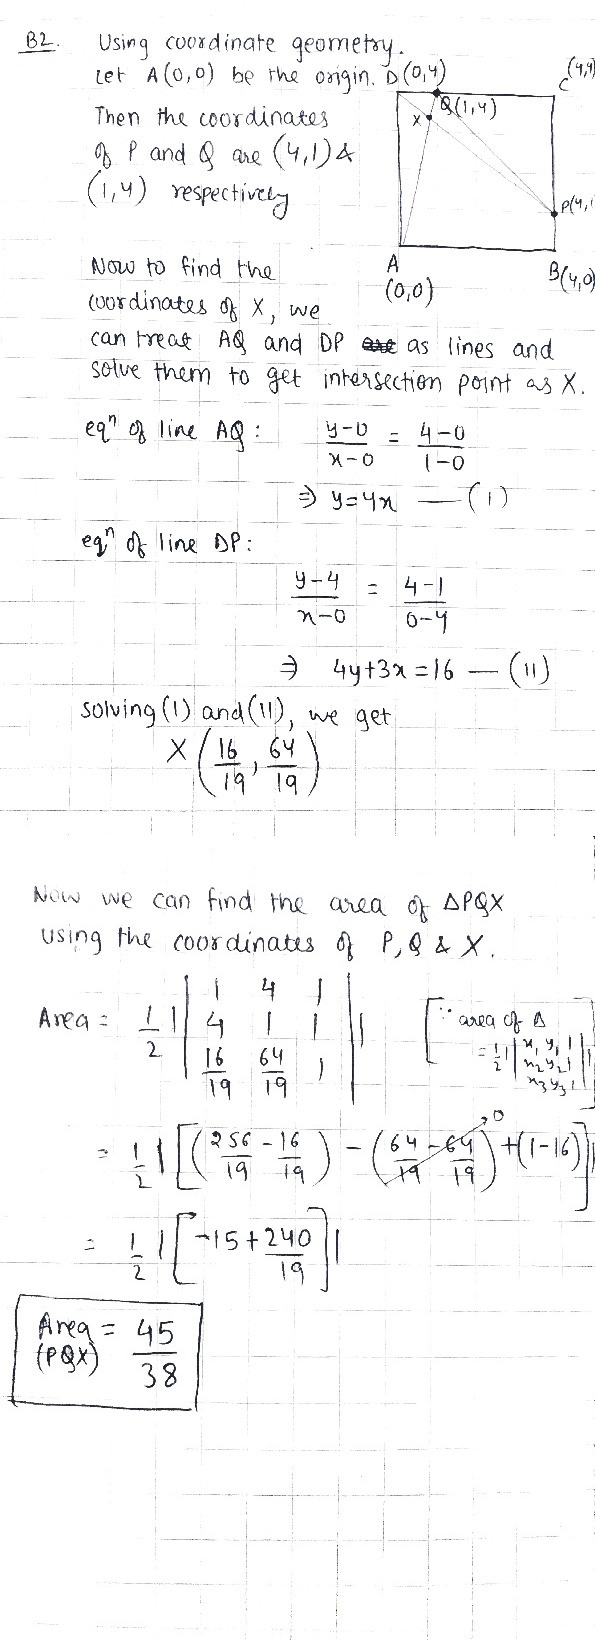 B2. Using coordinate geometry.
Let A(0,0) be the origin.
Then the coordinates
of P and Q are (4,1) &
(1,4) respectively
D(0,4)
C(4,4)
Q(1,4)
X
P(4,1
A
(0,0)
B(4,0)
Now to find the
coordinates of X, we
can treat AQ and DP as lines and
solve them to get intersection point as X.
eqⁿ of line AQ: (y-0)/(x-0) = (4-0)/(1-0)
⇒ y=4x — (I)
eqⁿ of line DP:
(y-4)/(x-0) = (4-1)/(0-4)
⇒ 4y+3x=16 — (II)
solving (I) and (II), we get
X (16/19, 64/19)
Now we can find the area of ΔPQX
using the coordinates of P, Q & X.
Area = 1/2 | | 1 4 1 | |
4 1 1
16/19 64/19 1
[∵ area of Δ
= 1/2 | | x₁ y₁ 1 | |
x₂ y₂ 1
x₃ y₃ 1
= 1/2 | [ (256/19 - 16/19) - (64/19 - 64/19) + (1-16) ] |
0
= 1/2 | [ -15 + 240/19 ] |
Area = 45/38
(PQX)